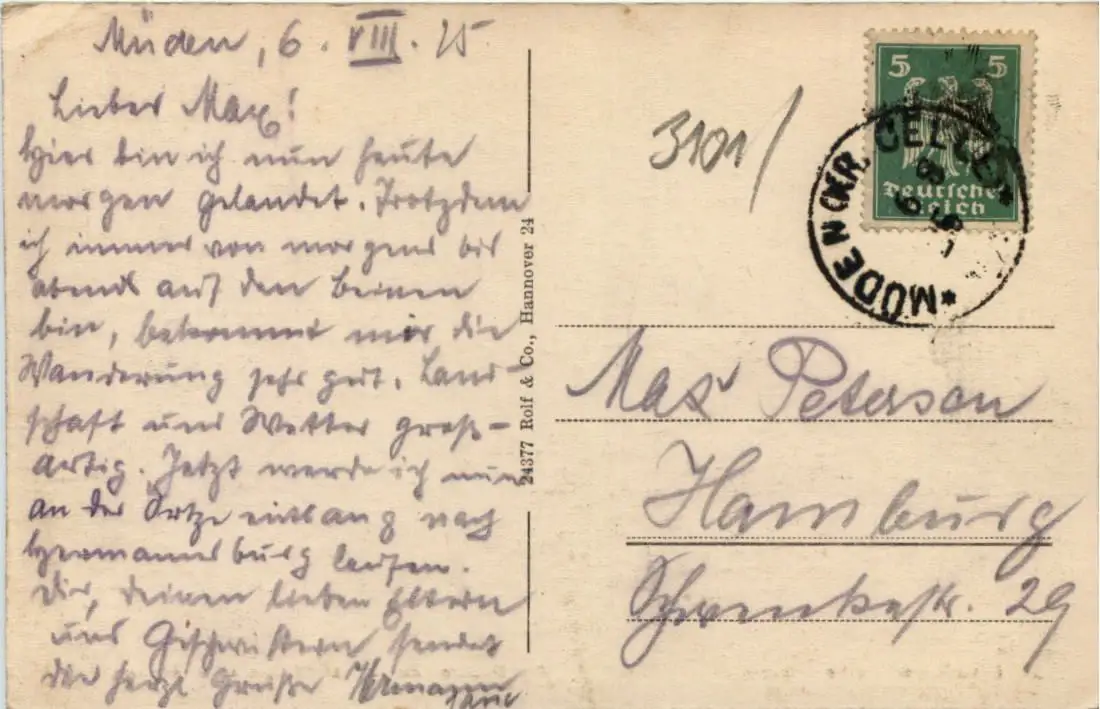 Müden, 6. VIII. 25
Lieber Max!
Hier bin ich nun heute
morgen gelandet. Trotzdem
ich immer von morgens bis
abends auf den Beinen
bin, bekommt mir die
Wanderung sehr gut. Land-
schaft und Wetter groß-
artig. Jetzt werde ich nun
an der Örtze entlang nach
Hermannsburg laufen.
Dir, deinen lieben Eltern
und Geschwistern sendet
die herzl Grüße Hermann
24377 Rolf & Co., Hannover 24
3101/
5 5
Deutsches
Reich
* MÜDEN (KR. CELLE) *
Max Peterson
Hamburg
29